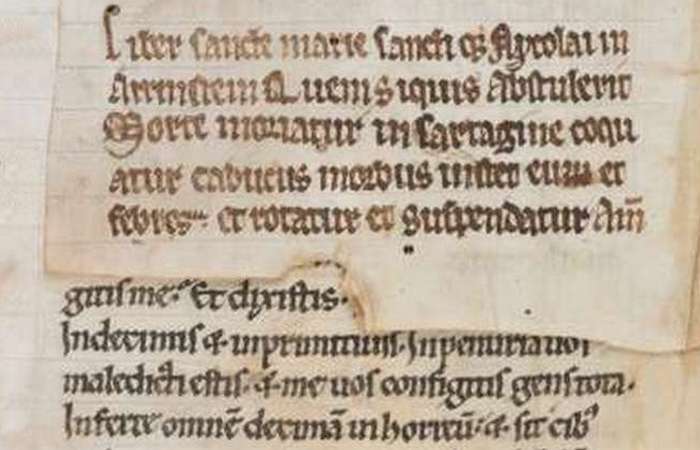 Liber sancte marie sancti qꝫ Nycolai in
Arrinstein Quem siquis abstulerit
Morte moriatur in sartagine coqu
atur caducus morbus instet eum et
febres et rotatur et suspendatur Am̅
gitis me. Et dixistis.
In decimis & in primitiuis. In penuria uos
maledicti estis. & me uos configitis gens tota.
Inferte omnē decimā in horreū. & sit cibꝰ